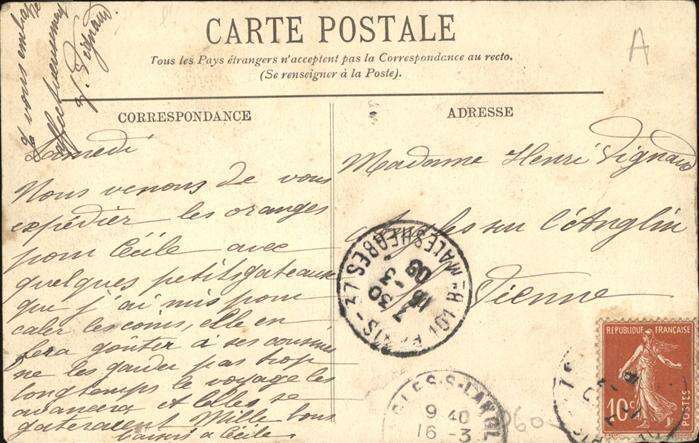 CARTE POSTALE
Tous les Pays étrangers n'acceptent pas la Correspondance au recto.
(Se renseigner à la Poste).
CORRESPONDANCE
Samedi
Nous venons de vous
expédier les oranges
pour Cécile avec
quelques petits gateaux
que j'ai mis pour
caler les coins, elle en
fera goûter à ses cousins
ne les garder pas trop
longtemps le voyage les
avancera et elles se
gateraient Mille bons
baisers à Cécile
Je vous embrasse
affectueusement
Y. Vignaud
ADRESSE
Madame Henri Vignaud
Angles sur l'Anglin
Vienne
A
PARIS
MALESHERBES
30
16
3
08
9 40
16 -3
RÉPUBLIQUE FRANÇAISE
10c
POSTES